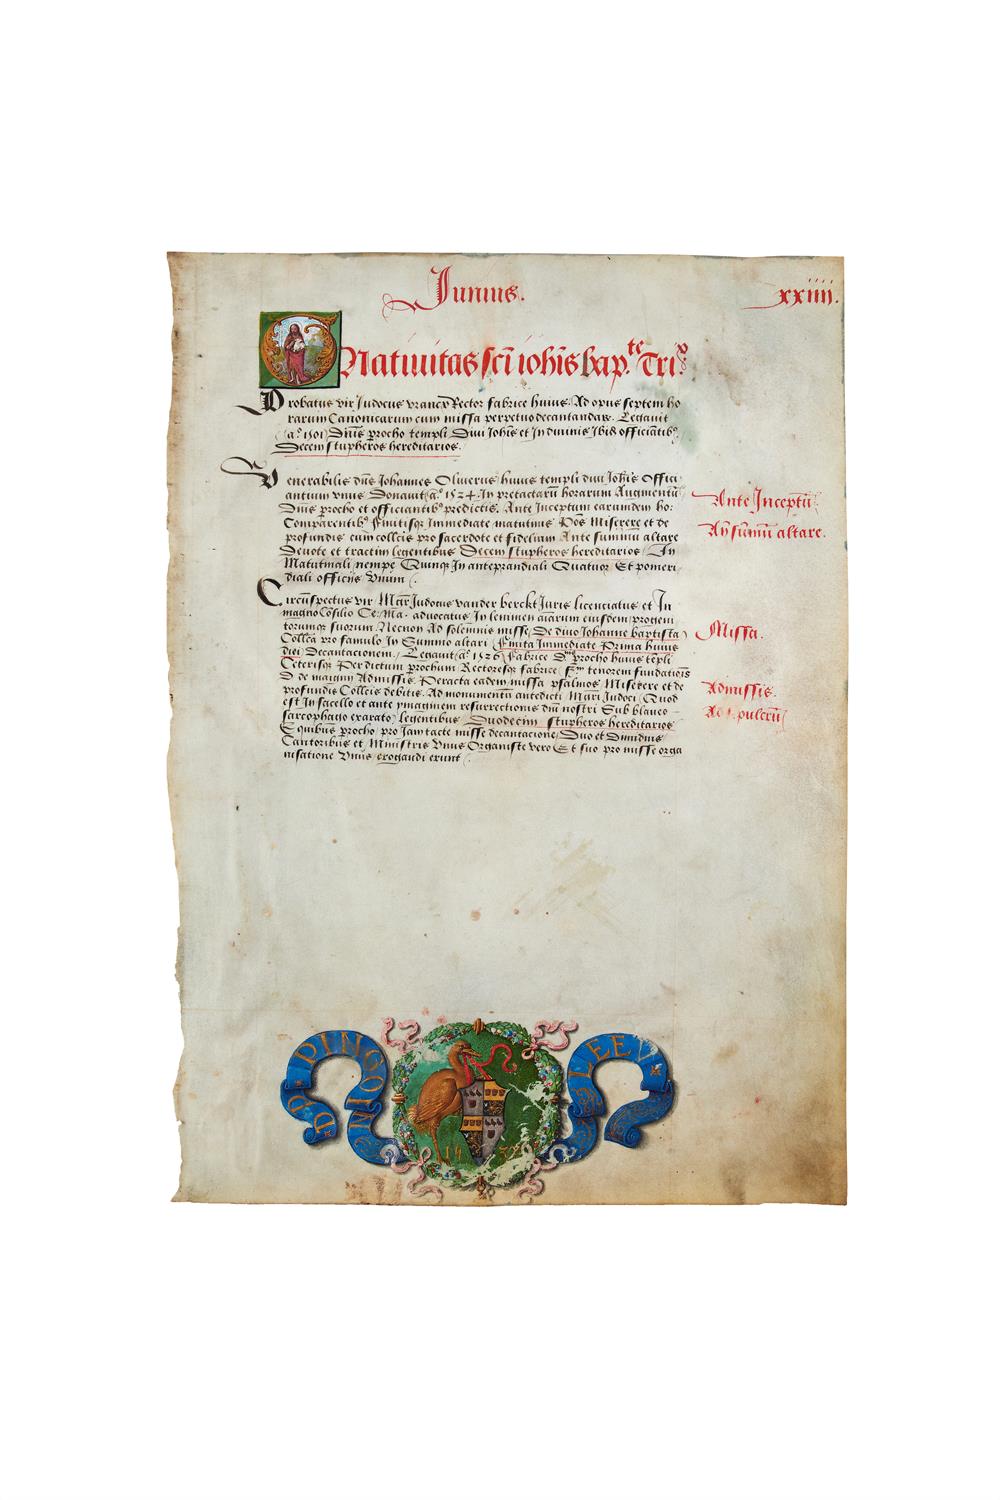 Junius.
xxiiij.
Natiuitas scī iohīs bap.te Tri.
Probatus vir Judocus vrancx Rector fabrice huius Ad opus septem ho
rarum Canonicarum cum missa perpetuo decantandar. Legauit
a.º 1501 Dnīs procho templi Diui Johīs et In diuinis Ibis officiātibꝰ
Decem stupheros hereditarios.
Venerabilis dn̄s Johannes Oliuerus huius templi diui Johīs Offici
antium vnus Donauit a.º 1524. In pretactarū horarum Augmentū
Dnīs procho et officiantibꝰ predictis. Ante Inceptum earumdem ho:
Comparentibꝰ Finitisqꝫ Immediate matutinis Miserere et de
profundis cum colleis pro sacerdote et fidelium Ante summū altare
Deuote et tractim legentibus Decem stupheros hereditarios In
Matutinali nempe Quinqꝫ In anteprandiali Quatuor Et pomeri
diali officijs Vnum
Ante Inceptū
Añ sumū altare.
Circūspectus vir Magr Judocus vander berckt Juris licenciatus et In
magno Cōsilio Ce. Ma. aduocatus In leuimen aīarum eiusdem progeni
torumqꝫ suorum Necnon Ad solemnis misse De diuo Johanne baptista
Collecā pro famulo In Summo altari Finita Immediate Prima huius
diei Decantacionem Legauit a.º 1526 Fabrice procho huius tēpli
Ceterisqꝫ Per dictum prochum Rectoresqꝫ fabrice tenorem fundatiōis
de maigni Admissis Peracta eadem missa psalmos Miserere et de
profundis Colleis debitis Ad monumentū antedicti Magri Judoci Quod
est In sacello et ante ymaginem resurrectionis dnī nostri Sub blaueo
sarcophago exarato legentibus Duodecim stupheros hereditarios
E quibus procho pro Jam tacte misse decantacione Duo et Dimidius
Cantoribus et Ministris Vnus Organiste vero Et suo pro misse orga
nisatione Vnus erogandi erunt
Missa.
Admissis.
Ad pulcrū
D.D. PINGONIO
LEEV
15